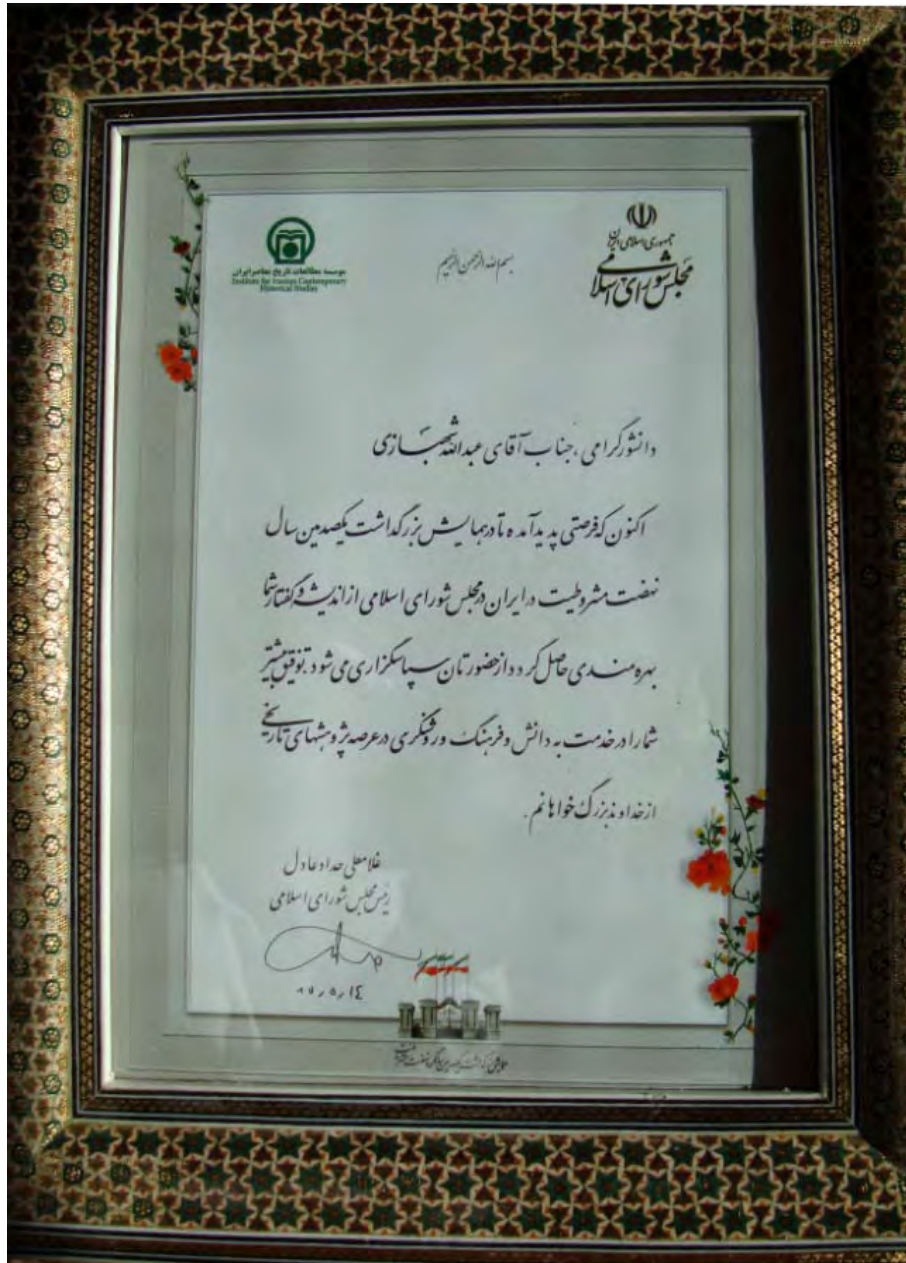 بسم الله الرحمن الرحیم
جمهوری اسلامی ایران
مجلس شورای اسلامی
موسسه مطالعات تاریخ معاصر ایران
Institute for Iranian Contemporary
Historical Studies
دانشور گرامی، جناب آقای عبدالله شهبازی
اکنون که فرصتی پدید آمده تا در همایش بزرگداشت یکصدمین سال
نهضت مشروطیت در ایران در مجلس شورای اسلامی از اندیشه و گفتار شما
بهره مندی حاصل گردد از حضورتان سپاسگزاری می شود. توفیق بیشتر
شما را در خدمت به دانش و فرهنگ و روشنگری در عرصه پژوهشهای تاریخی
از خداوند بزرگ خواهانم.
غلامعلی حداد عادل
رئیس مجلس شورای اسلامی
۸۵٫۵٫۱۴